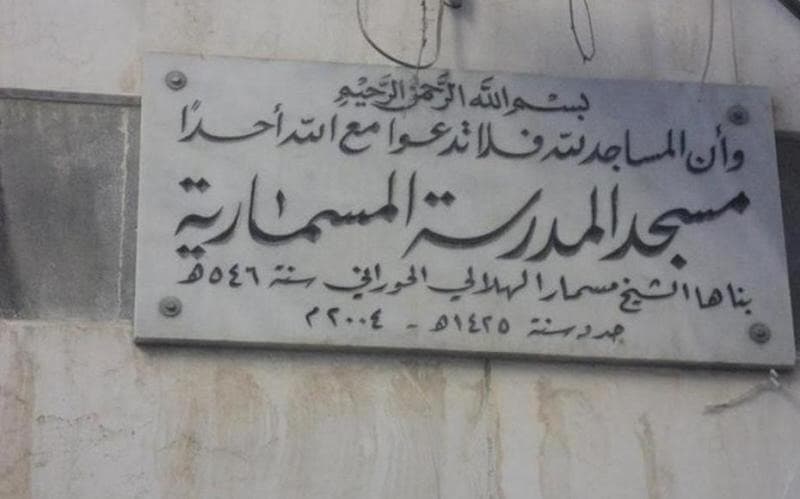 بسم الله الرَّحمن الرَّحيمِ
وأن المساجد لله فلا تدعوا مع الله أحدًا
مسجد المدرسة المسمارية
بناها الشيخ مسمار الهلالي الحوراني سنة ٥٤٦ هـ
جدد سنة ١٤٢٥هـ - ٢٠٠٤ م